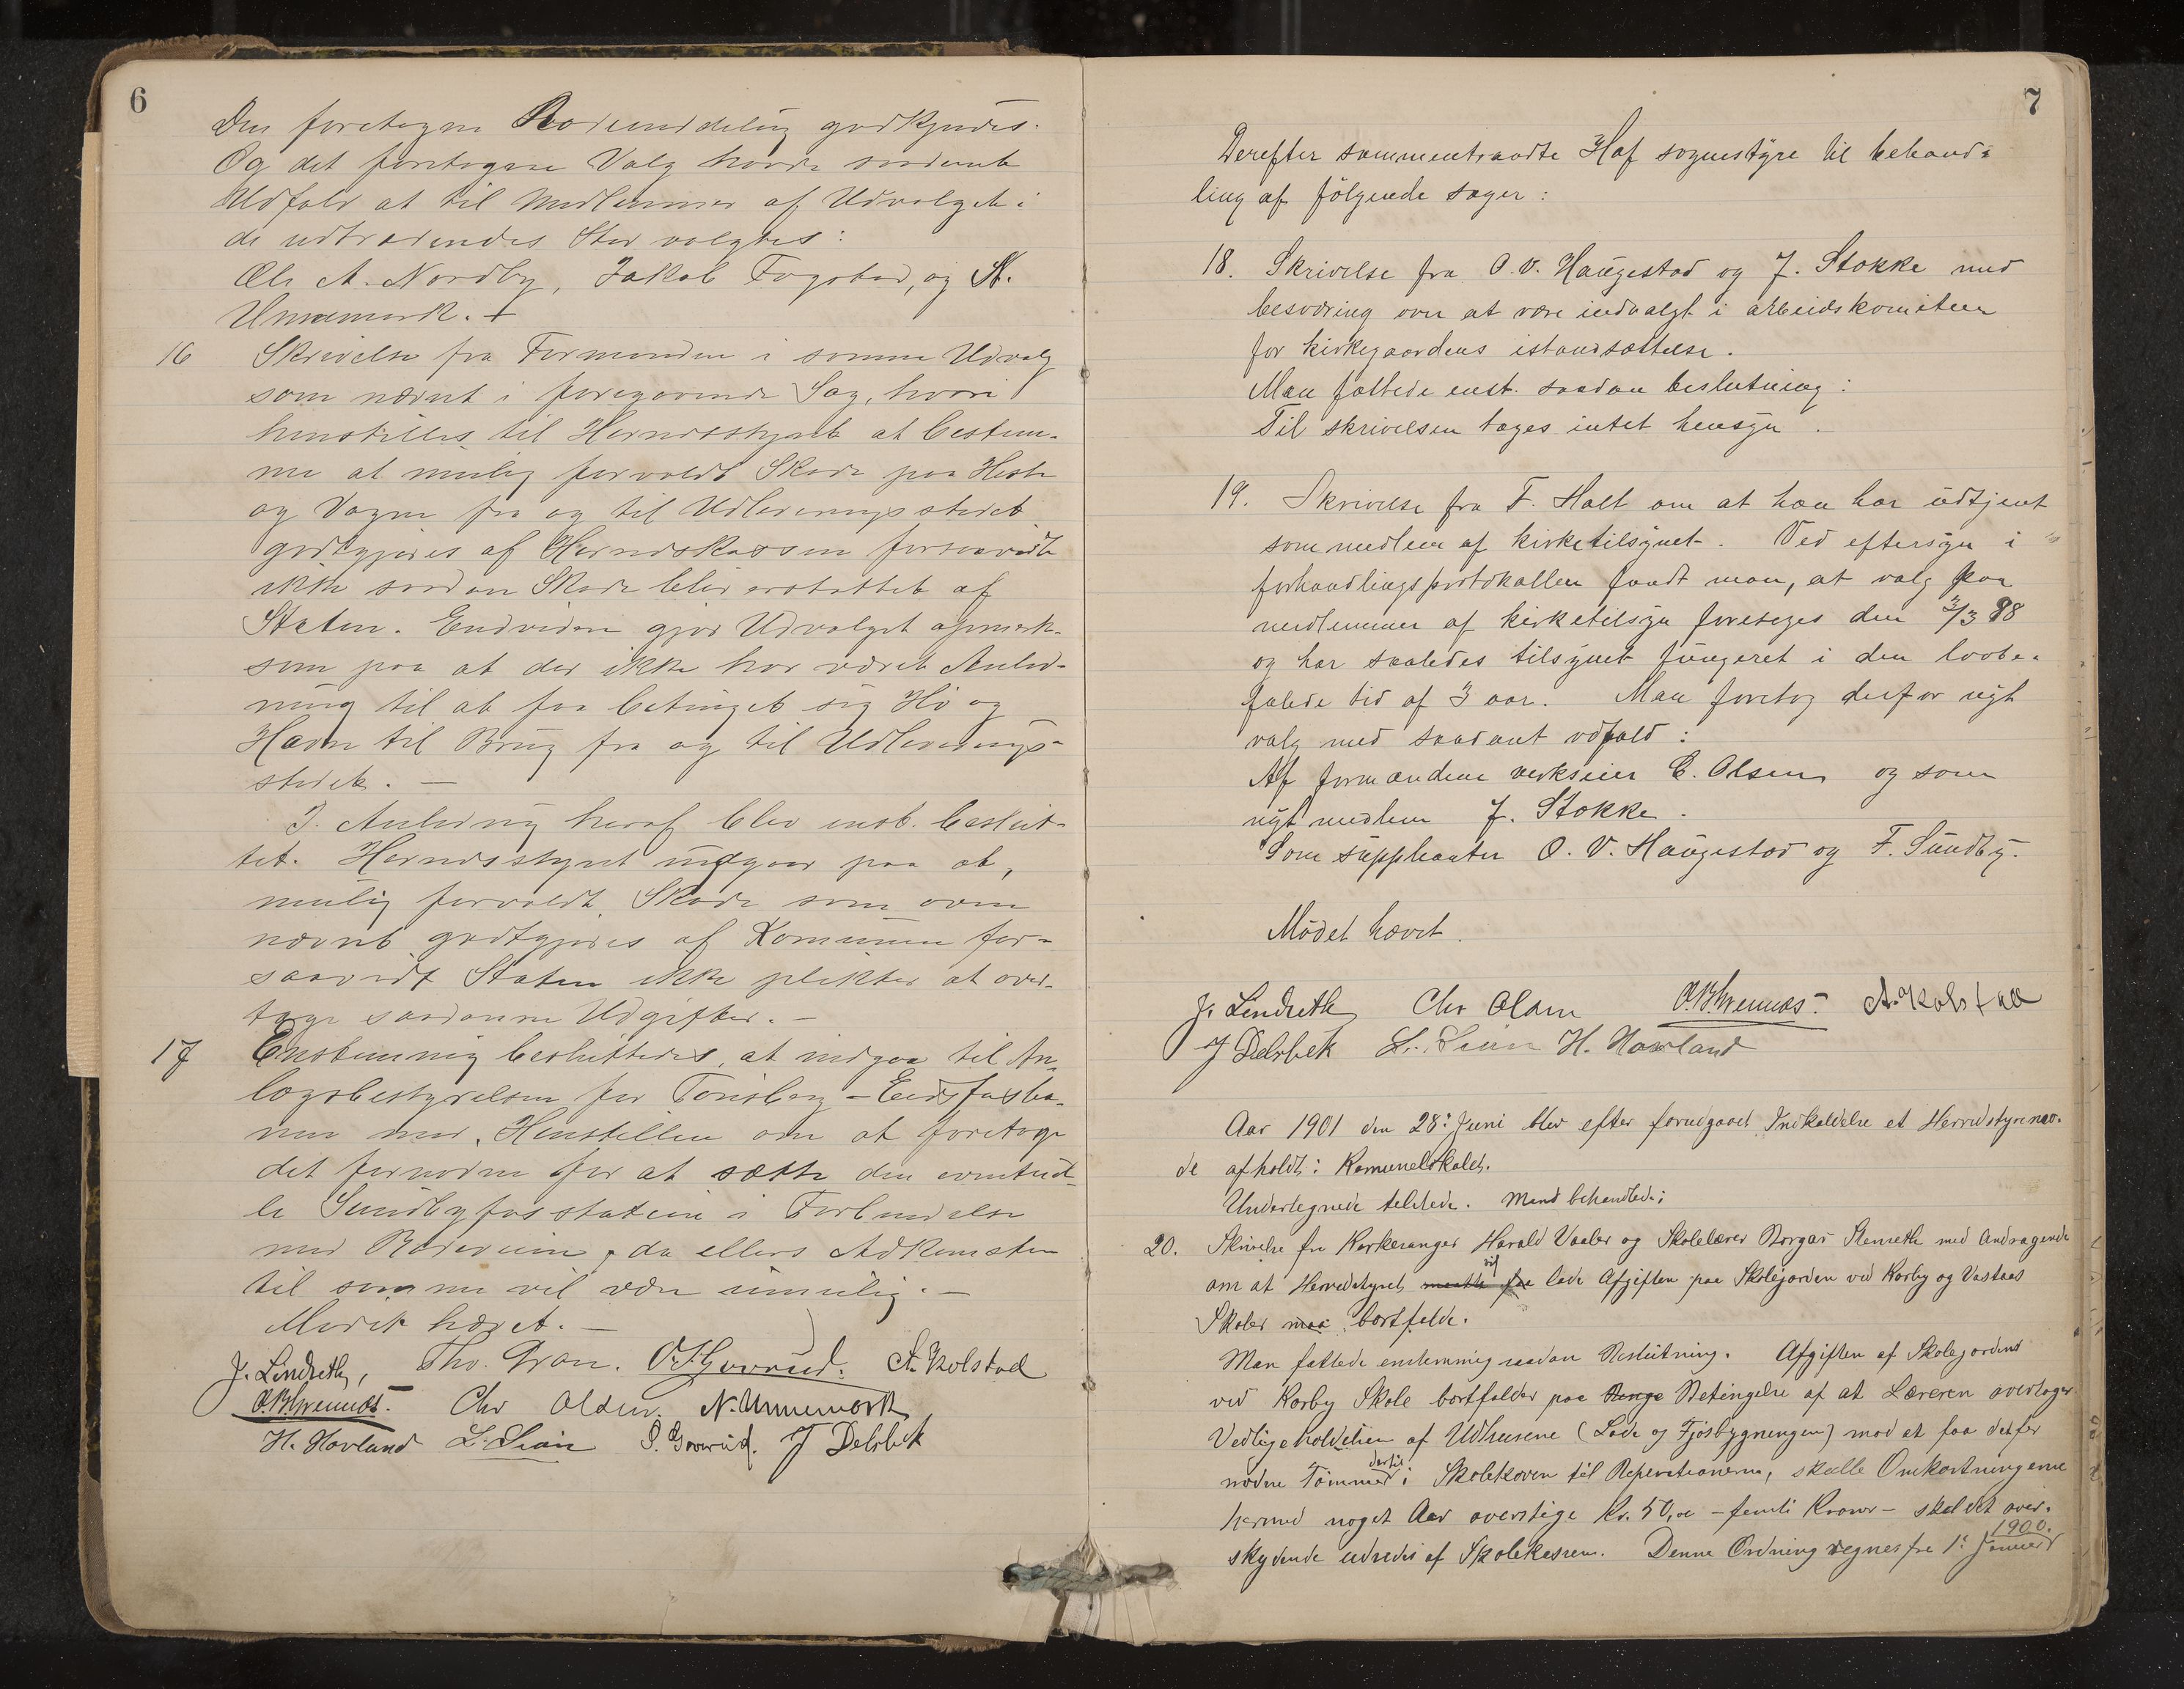 6
Den foretagne Rodeinddeling godkjendes.
Og det foretagne Valg havde saadant
Udfald at til Medlemmer af Udvalget i
de udtrædendes Sted valgtes:
Ole A. Nordby, Jakob Fogstad, og N.
Unnemark. +
16 Skrivelse fra Formanden i samme Udvalg
som nævnt i foregaaende Sag, hvori
henstilles til Herredsstyret at bestem-
me at mulig forvoldt Skade paa Heste
og Vogne fra og til Udleveringsstedet
godtgjøres af Herredskassen forsaavidt
ikke saadan Skade blir erstattet af
Staten. Endvidere gjør Udvalget opmærk-
som paa at der ikke har været Anled-
ning til at faa betinget sig Hø og
Havre til Brug fra og til Udleverings-
stedet. —
I Anledning heraf blev enst. beslut-
tet. Herredsstyret indgaar paa at,
mulig forvoldt Skade som oven
nævnt godtgjøres af Komunen for-
saavidt Staten ikke plikter at over-
tage saadanne Udgifter. —
17 Enstemmig besluttedes, at indgaa til An-
lægsbestyrelsen for Tønsberg-Eidsfosba-
nen med Henstillen om at foretage
det fornødne for at sætte den eventuel-
le Sundbyfosstation i Forbindelse
med Rodeveien, da ellers Adkomsten
til samme vil være umulig. —
Mødet hævet. —
J. Lindseth, Thv. Gran. O. S. Goverud. A. Kolstad
O. B. Wennes. Chr Olsen. N. Unnemark
H. Hovland L. Lian S. Goverud. J Delsbek
7
Derefter sammentraadte Hof sognestyre til behand-
ling af følgende sager:
18. Skrivelse fra O. V. Haugestad og J. Stokke med
besværing over at være indvalgt i arbeidskomiteen
for kirkegaardens istandsættelse.
Man fattede enst. saadan beslutning:
Til skrivelsen tages intet hensyn.
19. Skrivelse fra F. Holt om at han har udtjent
som medlem af kirketilsynet. Ved eftersyn i
forhandlingsprotokollen fandt man, at valg paa
medlemmer af kirketilsyn foretoges den 3/3 98
og har saaledes tilsynet fungeret i den lovbe-
falede tid af 3 aar. Man foretog derfor nyt
valg med saadant udfald:
Af formændene verkseier C. Olsen og som
nyt medlem J. Stokke.
Som suppleanter O. V. Haugestad og F. Sundby.
Mødet hævet.
J. Lindseth Chr Olsen O. B. Wennes. A. Kolstad
J Delsbek L. Lian H. Hovland
Aar 1901 den 28: Juni blev efter forudgaaet Indkaldelse et Herredstyremø-
de afholdt i Komunelokalet.
Undertegnede tilstede. Mand behandlede:
20. Skrivelse fra Kirkesanger Harald Vaaler og Skolelærer Borgar Stenseth med Andragende
om at Herredstyret maatte faa vil lade Afgiften paa Skolejorden ved Korby og Vastaas
Skoler maa bortfalde.
Man fattede enstemmig saadan Beslutning. Afgiften af Skolejorden
ved Korby Skole bortfalder paa Betingelse af at Læreren overtager
Vedligeholdelsen af Udhusene (Lade og Fjøsbygningen) mod at faa det for
nødne Tømmer dertil i Skoleskoven til Reperationerne, skulle Omkostningerne
hermed noget Aar overstige Kr. 50,00 – femti Kroner – skal det over-
skydende udredes af Skolekassen. Denne Ordning regnes fra 1: Januar 1900.